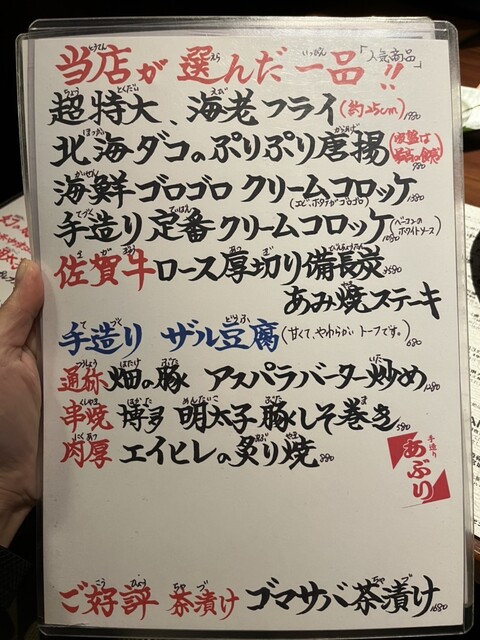 当店が選んだ一品!!「人気商品」
超特大、海老フライ(約25cm)1980
北海ダコのぷりぷり唐揚(吸盤は最高の食感)980
海鮮ゴロゴロクリームコロッケ(エビ、ホタテがゴロゴロ)1380
手造り定番クリームコロッケ(ベーコンのホワイトソース)1080
佐賀牛ロース厚切り備長炭
あみ焼ステーキ
手造り ザル豆腐(甘くて、やわらかい トーフです。)680
通称 畑の豚 アスパラバター炒め1280
串焼 博多 明太子豚しそ巻き580
肉厚 エイヒレの炙り焼880
手造り
あぶり
ご好評 茶漬け ゴマサバ茶漬け1680